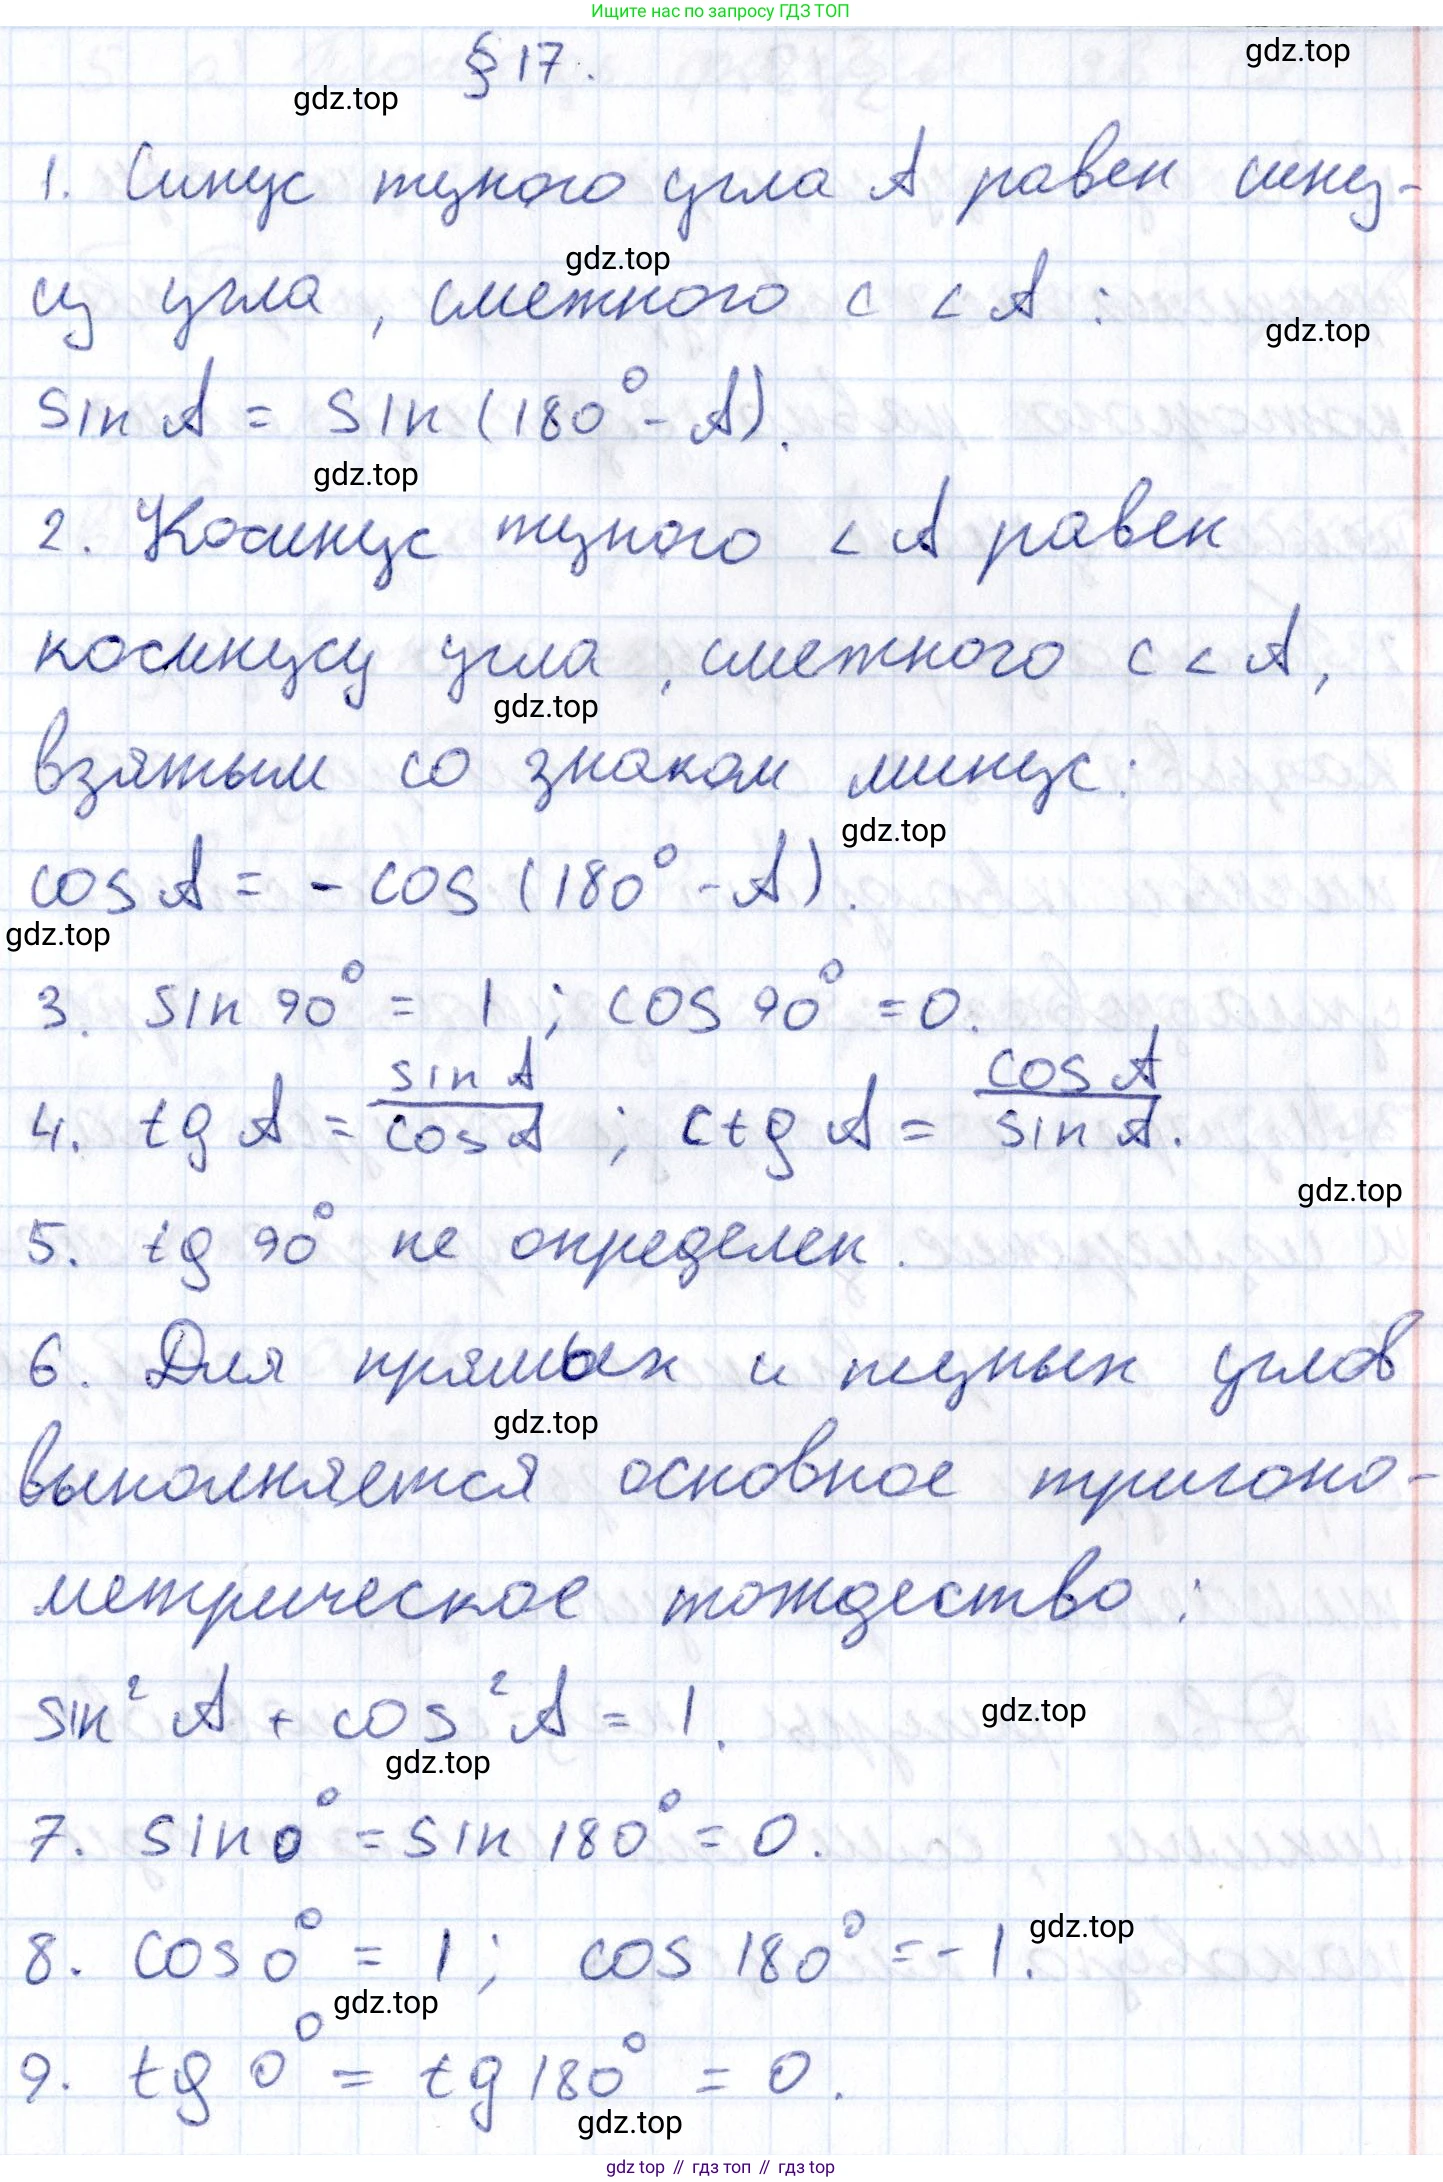 Ищите нас по запросу ГДЗ ТОП
§ 17.
gdz.top
gdz.top
1. Синус тупого угла A равен сину-
gdz.top
су угла, смежного с ∠A:
gdz.top
sin A = sin (180° - A).
gdz.top
2. Косинус тупого ∠A равен
косинусу угла, смежного с ∠A,
gdz.top
взятым со знаком минус:
gdz.top
cos A = - cos (180° - A).
gdz.top
3. sin 90° = 1; cos 90° = 0.
4. tg A = sin A / cos A; ctg A = cos A / sin A.
gdz.top
5. tg 90° не определен.
6. Для прямых и тупых углов
gdz.top
выполняется основное тригоно-
метрическое тождество:
sin² A + cos² A = 1.
gdz.top
gdz.top
7. sin 0° = sin 180° = 0.
8. cos 0° = 1; cos 180° = -1.
gdz.top
gdz.top
9. tg 0° = tg 180° = 0.
gdz.top
gdz top // гдз топ // гдз top